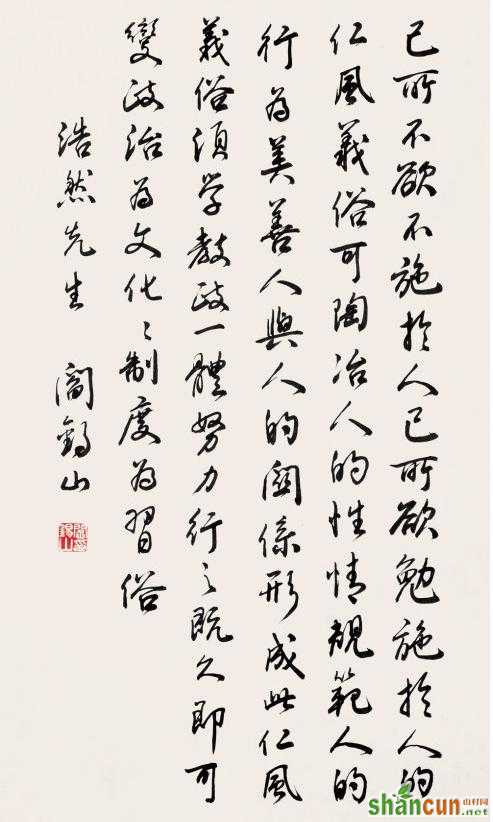 己所不欲不施於人己所欲勉施於人的
仁風義俗可陶冶人的性情規範人的
行為美善人與人的關係形成此仁風
義俗須学教政一體努力行之既久即可
變政治為文化〻制度為習俗
浩然先生 閻錫山
閻錫山
shancun 山村网
.net